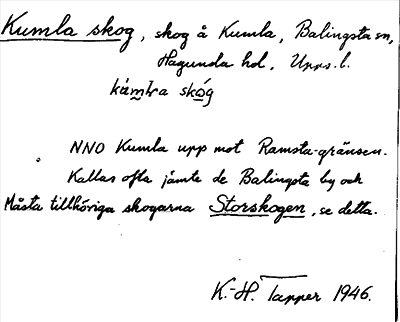 Kumla skog, skog å Kumla, Balingsta sn,
Hagunda hd, Upps. l.
kúmlra skóg
NNO Kumla upp mot Ramsta-gränsen.
Kallas ofta jämte de Balingsta by och
Måsta tillhöriga skogarna Storskogen, se detta.
K.-H. Tapper 1946.